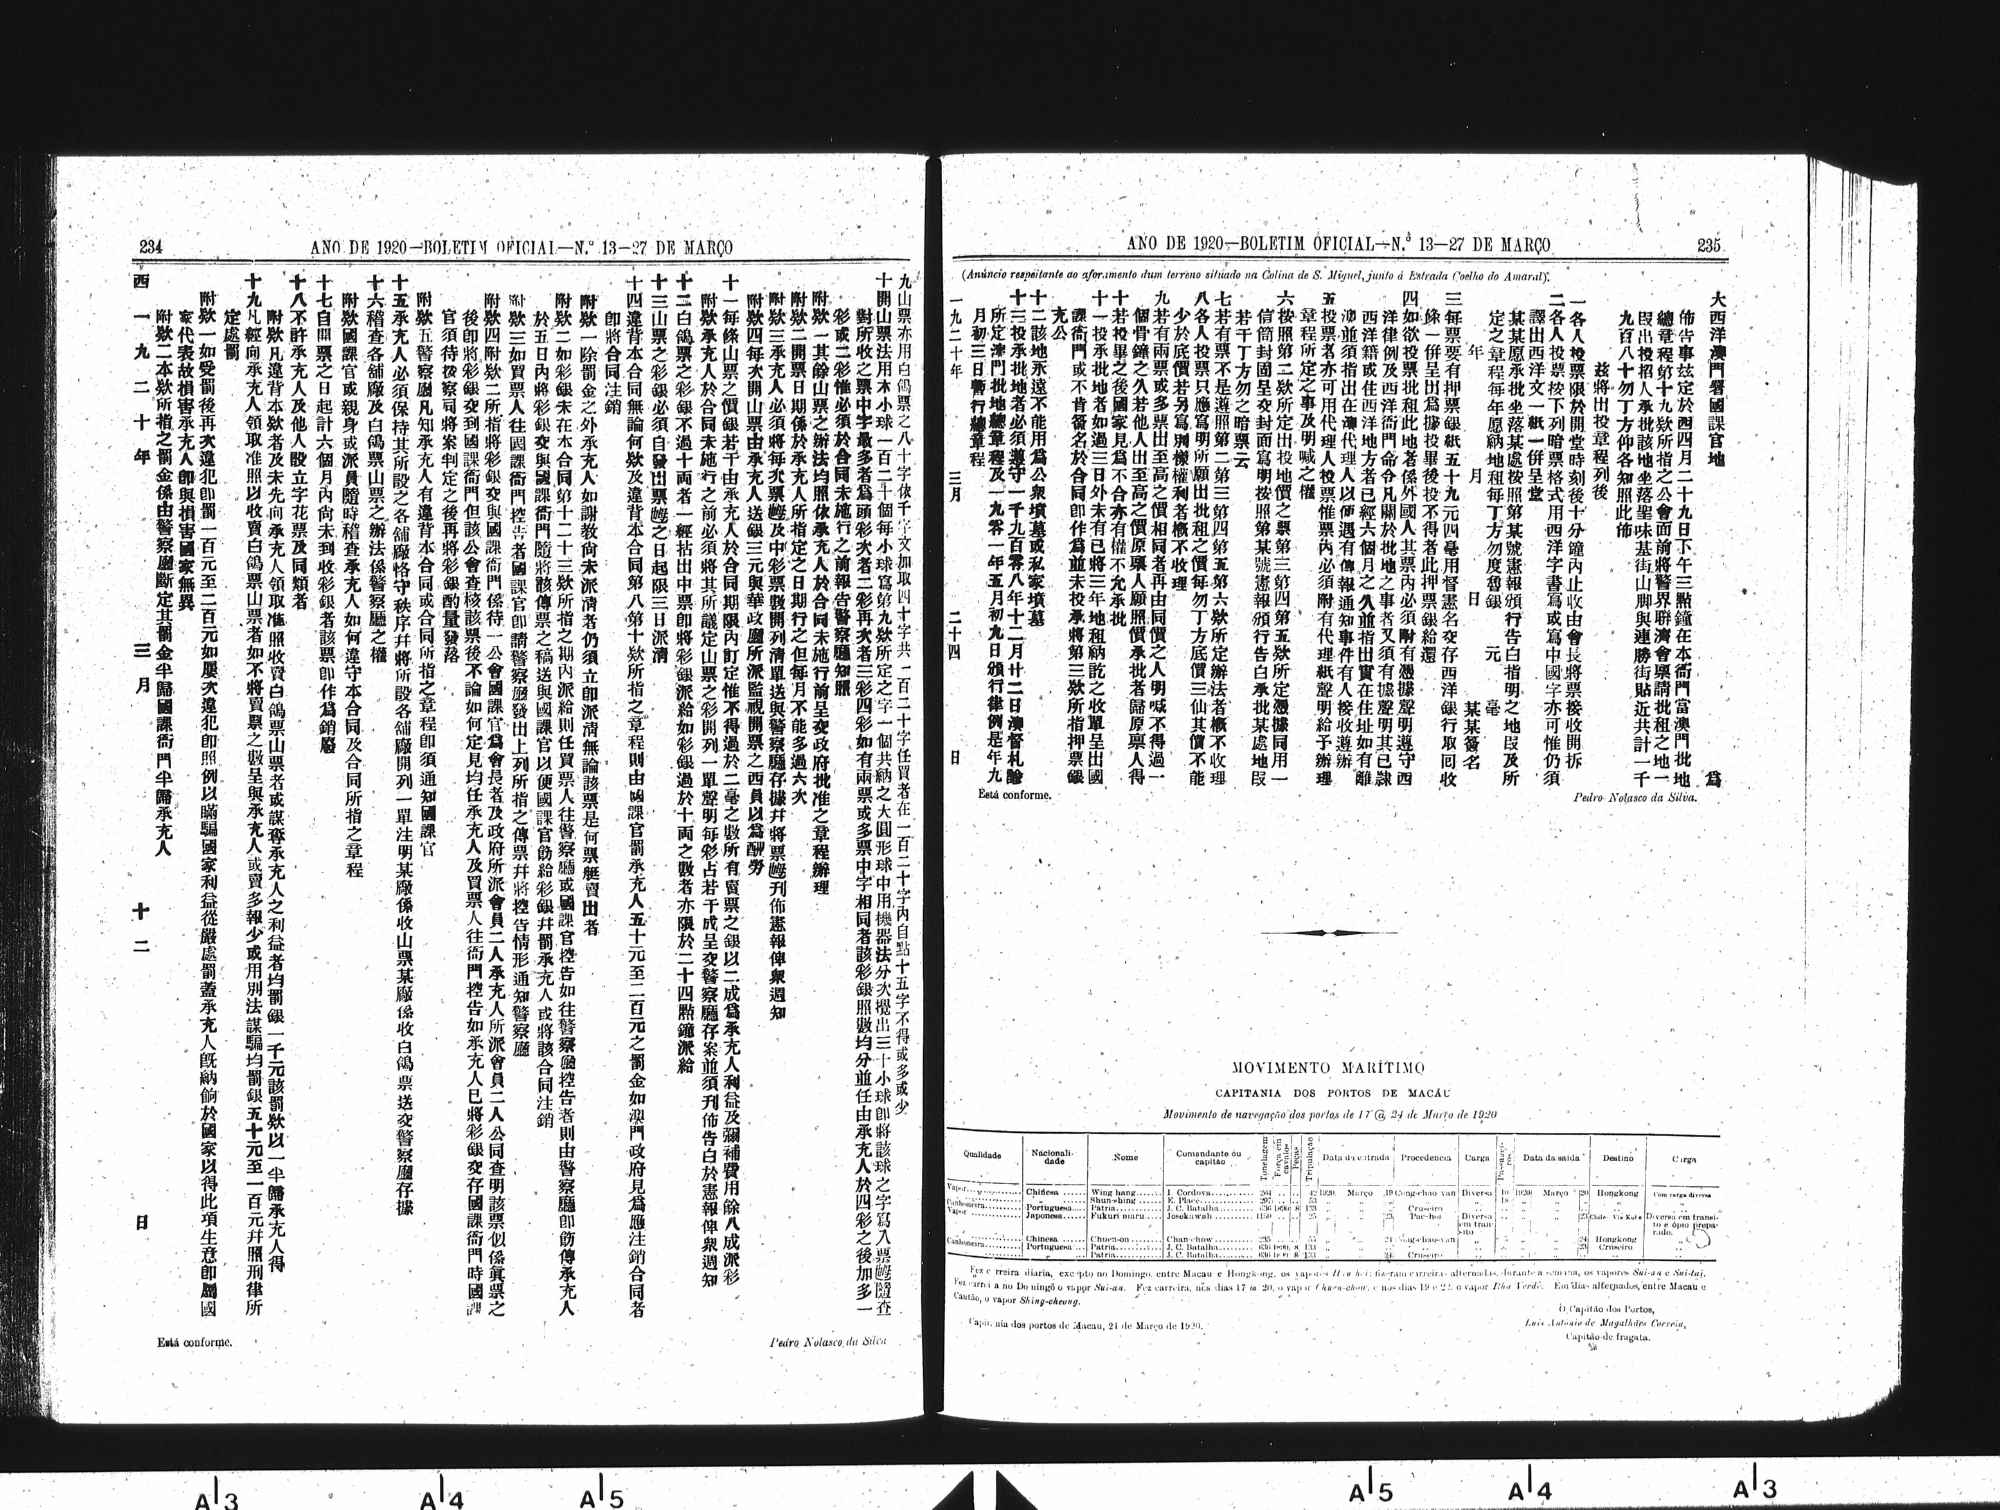 234
ANO DE 1920—BOLETIM OFICIAL—N.º 13—27 DE MARÇO
九山票亦用白鴿票之八十字依千字文加取四十字共一百二十字任買者在一百二十字內自點十五字不得或多或少
十開山票法用木小球一百二十個每小球寫第九欵所定之字一個共納之大圓形球中用機器法分次攪出三十小球卽將該球之字寫入票艔隨查
對所收之票中字最多者爲頭彩次者二彩再次者三彩四彩如有兩票或多票中字相同者該彩銀照數均分並任由承充人於四彩之後加多一
彩或二彩惟必須於合同未施行之前報告警察廳知照
附欵一其餘山票之辦法均照依承充人於合同未施行前呈交政府批准之章程辦理
附欵二開票日期係於承充人所指定之日期行之但每月不能多過六次
附欵三承充人必須將每次票艔及中彩票數開列清單送與警察廳存據幷將票艔刊佈憲報俾衆週知
附欵四每次開山票由承充人送銀三元與華政廳所派監視開票之西員以爲酬勞
十一每條山票之價銀若干由承充人於合同期限內訂定惟不得過於二毫之數所有賣票之銀以二成爲承充人利益及彌補費用餘八成派彩
附欵承充人於合同未施行之前必須將其所議定山票之彩開列一單聲明每彩占若干成呈交警察廳存案並須刊佈告白於憲報俾衆週知
十二白鴿票之彩銀不過十両者一經拈出中票卽將彩銀派給如彩銀過於十両之數者亦限於二十四點鐘派給
十三山票之彩銀必須自發出票艔之日起限三日派清
十四違背本合同無論何欵及違背本合同第八第十欵所指之章程則由國課官罰承充人五十元至二百元之罰金如澳門政府見爲應注銷合同者
卽將合同注銷
附欵一除罰金之外承充人如謝教尙未派清者仍須立卽派清無論該票是何票艇賣出者
附欵二如彩銀未在本合同第十二十三欵所指之期內派給則任買票人往警察廳或國課官控告如往警察廳控告者則由警察廳卽飭傳承充人
於五日內將彩銀交與國課衙門隨將該傳票之稿送與國課官以便國課官飭給彩銀幷罰承充人或將該合同注銷
附欵三如買票人往國課衙門控告者國課官卽請警察廳發出上列所指之傳票幷將控告情形通知警察廳
附欵四附欵二所指將彩銀交與國課衙門係待一公會國課官爲會長者及政府所派會員二人承充人所派會員二人公同查明該票似係眞票之
後卽將彩銀交到國課衙門但該公會查核該票後不論如何定見均任承充人及買票人往衙門控告如承充人已將彩銀交存國課衙門時國課
官須待按察司將案判定之後再將彩銀酌量發落
附欵五警察廳凡知承充人有違背本合同或合同所指之章程卽須通知國課官
十五承充人必須保持其所設之各舖廠恪守秩序幷將所設各舖廠開列一單注明某廠係收山票某廠係收白鴿票送交警察廳存據
十六稽查各舖廠及白鴿票山票之辦法係警察廳之權
附欵國課官或親身或派員隨時稽查承充人如何違守本合同及合同所指之章程
十七自開票之日起計六個月內尙未到收彩銀者該票卽作爲銷廢
十八不許承充人及他人設立字花票及同類者
附欵凡違背本欵者及未先向承充人領取准照收賣白鴿票山票者或謀奪承充人之利益者均罰銀一千元該罰欵以一半歸承充人得
十九凡經向承充人領取准照以收賣白鴿票山票者如不將賣票之數呈與承充人或賣多報少或用別法謀騙均罰銀五十元至一百元幷照刑律所
定處罰
附欵一如受罰後再次違犯卽罰一百元至二百元如屢次違犯卽照例以瞞騙國家利益從嚴處罰蓋承充人旣納餉於國家以得此項生意卽屬國
家代表故損害承充人卽與損害國家無異
附欵二本欵所指之罰金係由警察廳斷定其罰金半歸國課衙門半歸承充人
西一九二十年三月十二日
Está conforme.
Pedro Nolasco da Silva
ANO DE 1920—BOLETIM OFICIAL—N.º 13—27 DE MARÇO
235
(Anúncio respeitante ao aforamento dum terreno situado na Colina de S. Miguel, junto á Estrada Coelho do Amaral).
大西洋澳門署國課官地 爲
佈告事玆定於西四月二十九日下午三點鐘在本衙門當澳門批地
總章程第十九欵所指之公會面前將警界聯濟會禀請批租之地一
叚出投招人承批該地坐落聖味基街山脚與連勝街貼近共計一千
九百八十勿丁方仰各知照此佈
玆將出投章程列後
一各人投票限於開堂時刻後十分鐘內止收由會長將票接收開拆
二各人投票按下列暗票格式用西洋字書寫或寫中國字亦可惟仍須
譯出西洋文一紙一倂呈堂
某某愿承批坐落某處按照第某號憲報頒行告白指明之地叚及所
定之章程每年愿納地租每丁方勿度魯銀 元 毫
年 月 日 某某簽名
三每票要有押票銀紙五十九元四毫用督憲名交存西洋銀行取回收
條一倂呈出爲據投畢後投不得者此押票銀給還
四如欲投票批租此地者係外國人其票內必須附有憑據聲明遵守西
洋律例及西洋衙門命令凡關於批地之事者又須有據聲明其已隸
西洋籍或住西洋地方者已經六個月之久並指出實在住址如有離
澳並須指出在澳代理人以便遇有傳報通知事件有人接收遵辦
五投票者亦可用代理人投票惟票內必須附有代理紙聲明給予辦理
章程所定之事及明喊之權
六按照第二欵所定出投地價之票第三第四第五欵所定憑據同用一
信筒封固呈交封面寫明按照第某號憲報頒行告白承批某處地叚
若干丁方勿之暗票云
七若有票不是遵照第二第三第四第五第六欵所定辦法者槪不收理
八各人投票只應寫明所願出批租之價每勿丁方底價三仙其價不能
少於底價若另寫別樣權利者槪不收理
九若有兩票或多票出至高之價相同者再由同價之人明喊不得過一
個骨鐘之久若他人出至高之價原禀人願照價承批者歸原禀人得
十若投畢之後國家見爲不合亦有權不允承批
十一投承批地者如過三日外未有已將三年地租納訖之收單呈出國
課衙門或不肯簽名於合同卽作爲並未投承將第三欵所指押票銀
充公
十二該地永遠不能用爲公衆墳墓或私家墳墓
十三投承批地者必須遵守一千九百零八年十二月廿二日澳督札諭
所定澳門批地總章程及一九零一年五月初九日頒行律例是年九
月初三日暫行總章程
一九二十年 三月 二十四 日
Está conforme.
Pedro Nolasco da Silva.
MOVIMENTO MARÍTIMO
CAPITANIA DOS PORTOS DE MACÁU
Movimento de navegação dos portos de 17 @ 24 de Março de 1920
Qualidade Nacionalidade Nome Comandante ou capitão Tonelagem Força em cavalos Peças Tripulação Data da entrada Procedencia Carga Passageiros Data da saída Destino Carga
Vapor Chinesa Wing hang I. Cordova 264 42 1920 Março 19 Cong-chao van Diversa 10 1920 Março 20 Hongkong Com carga diversa
Shun-shing E. Place 297 53
Canhoneira Portuguesa Patria J. C. Batalha 636 8 133 Cruseiro
Vapor Japonesa Fukuri maru Josokawah 1150 25 23 Pac-hoi Diversa em transito 23 Diversa em transito e ópio preparado.
Chinesa Chuen-on Chan-chow 295 24 Hongkong
Canhoneira Portuguesa Patria J. C. Batalha 636 8 133 23 Cruseiro
Patria J. C. Batalha 636 8 133 24 Cruseiro
Fez carreira diaria, excepto no Domingo, entre Macau e Hongkong, os vapores fizeram carreiras alternadas, durante a semana, os vapores Sui-an e Sui-tai.
Fez carreira no Domingo o vapor Sui-an. Fez carreira, nos dias 17 e 20, o vapor Chuen-chow, e nos dias 19 e 22, o vapor Ilha Verde. Em dias alternados, entre Macau e
Cantão, o vapor Shing-cheong.
Capitania dos portos de Macau, 24 de Março de 1920.
O Capitão dos Portos,
Luis António de Magalhães Correia,
Capitão de fragata.
A 3
A 4
A 5
A 5
A 4
A 3